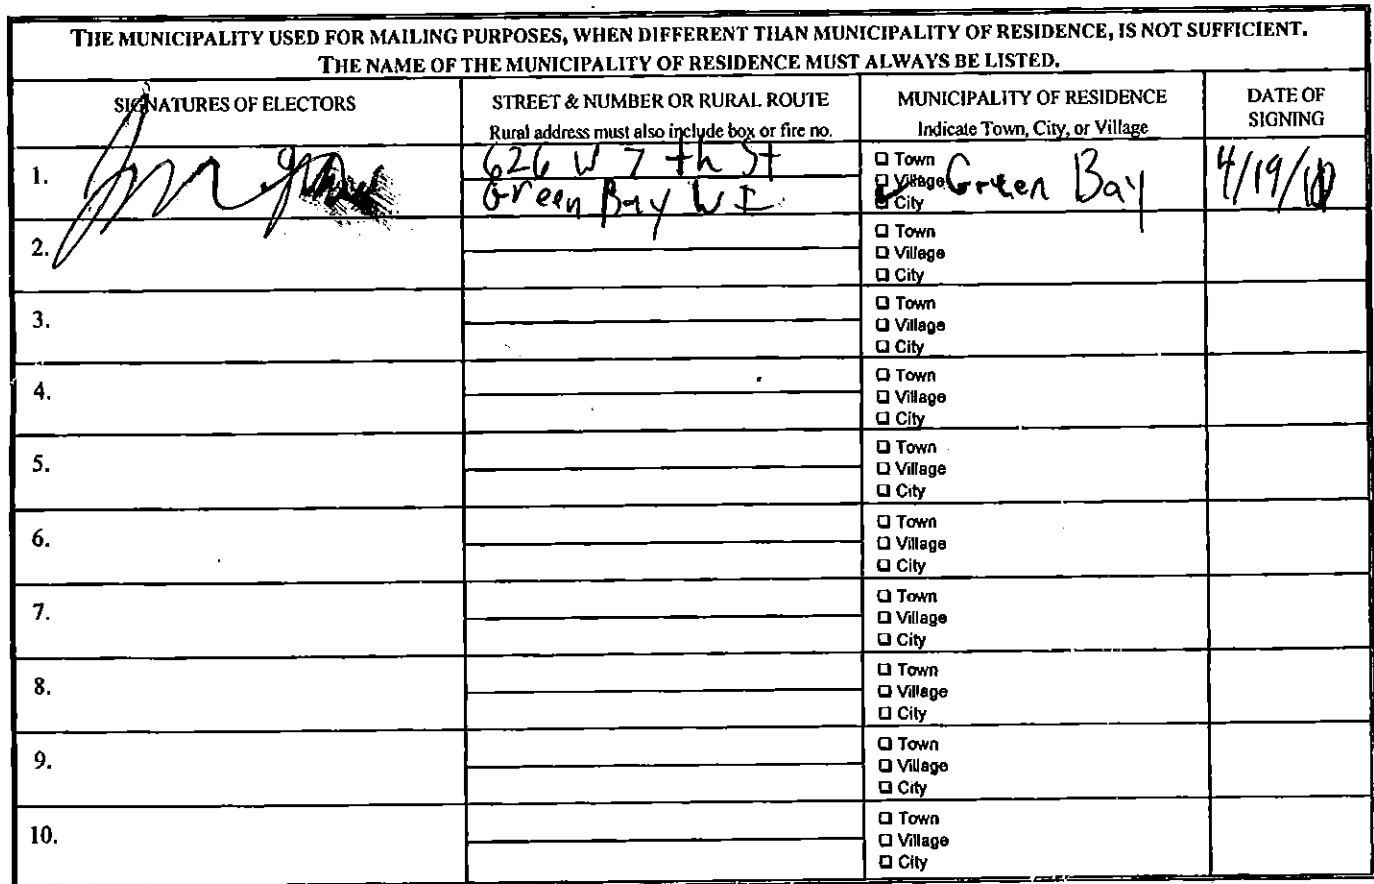 THE MUNICIPALITY USED FOR MAILING PURPOSES, WHEN DIFFERENT THAN MUNICIPALITY OF RESIDENCE, IS NOT SUFFICIENT.
THE NAME OF THE MUNICIPALITY OF RESIDENCE MUST ALWAYS BE LISTED.
SIGNATURES OF ELECTORS
STREET & NUMBER OR RURAL ROUTE
Rural address must also include box or fire no.
MUNICIPALITY OF RESIDENCE
Indicate Town, City, or Village
DATE OF
SIGNING
1.
626 W 7th St
Green Bay WI
❑ Town
❑ Village
City
Green Bay
4/19/
2.
❑ Town
❑ Village
❑ City
3.
❑ Town
❑ Village
❑ City
4.
❑ Town
❑ Village
❑ City
5.
❑ Town
❑ Village
❑ City
6.
❑ Town
❑ Village
❑ City
7.
❑ Town
❑ Village
❑ City
8.
❑ Town
❑ Village
❑ City
9.
❑ Town
❑ Village
❑ City
10.
❑ Town
❑ Village
❑ City